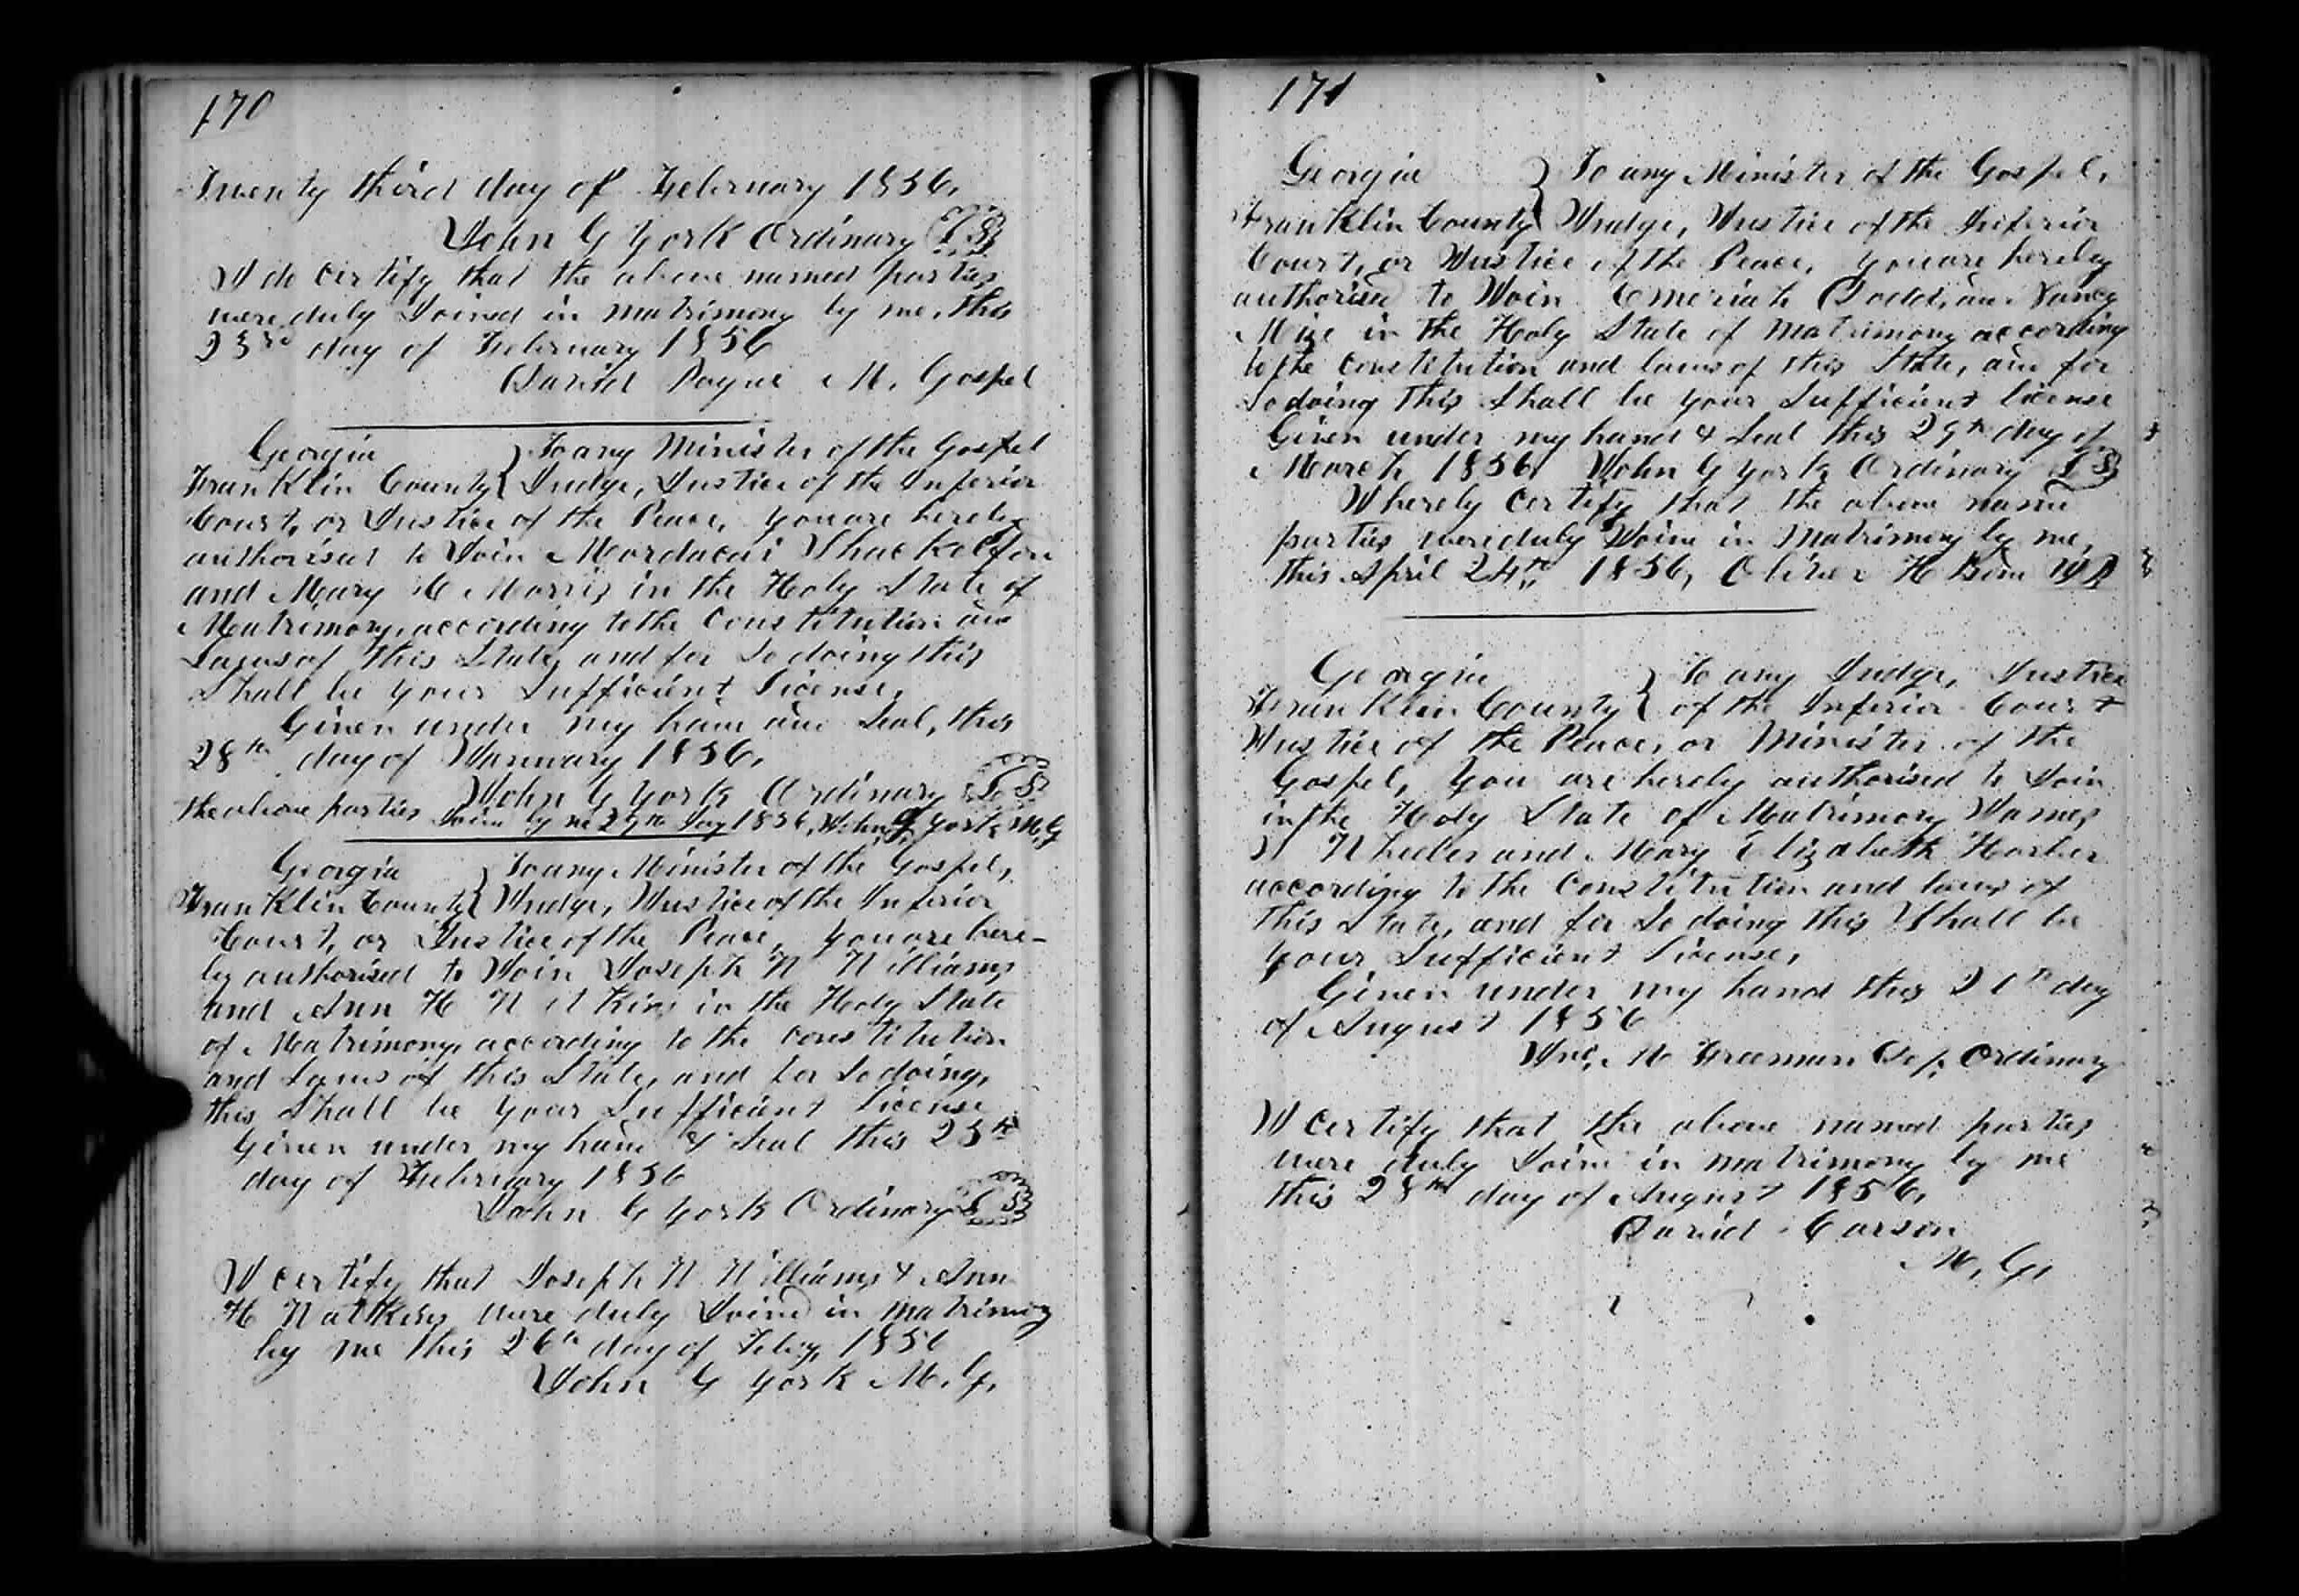 170
Twenty third day of February 1856,
John G York Ordinary L S
I do certify that the above named parties
were duly Joined in matrimony by me, this
23rd day of February 1856
David Payne M. Gospel
Georgia } To any Minister of the Gospel
Franklin County } Judge, Justice of the Inferior
Court, or Justice of the Peace, you are hereby
authorised to Join Mordacai Shackelford
and Mary C Morris in the Holy State of
Matrimony, according to the Constitution and
Laws of this State, and for So doing this
Shall be your Sufficient License,
Given under my hand and Seal, this
28th day of January 1856,
John G York Ordinary L S
the above parties Joind by me 29th Jay 1856, John G York M, G
Georgia } To any Minister of the Gospel,
Franklin County } Judge, Justice of the Inferior
Court, or Justice of the Peace, you are here-
by authorised to Join Joseph W Williams
and Ann H in the Holy State
of Matrimony, according to the constitution
and Laws of this State, and for So doing,
this Shall be your Sufficient License
Given under my hand & Seal this 25th
day of February 1856
John G York Ordinary L S
I certify that Joseph W. Williams & Ann
H Watkins were duly Joind in matrimony
by me this 26th day of Feby, 1856
John G York M. G,
171
Georgia } To any Minister of the Gospel,
Franklin County } Judge, Justice of the Inferior
Court, or Justice of the Peace, you are hereby
authorised to Join Dodd, and Nancy
Mize in the Holy State of Matrimony according
to the constitution and laws of this State, and for
So doing this Shall be your Sufficient license
Given under my hand & Seal this 29th day of
March 1856 John G York Ordinary L S
I hereby certify that the above named
parties were duly Joind in Matrimony by me,
this April 24th, 1856, Oliver H
Georgia } To any Judge, Justice
Franklin County } of the Inferior Court
Justice of the Peace, or Minister of the
Gospel, you are hereby authorised to Join
in the Holy State of Matrimony James
Wheeler and Mary Elizabeth Harber
according to the Constitution and laws of
this State, and for So doing this Shall be
your Sufficient License,
Given under my hand this day
of August 1856
M Freeman Dep, Ordinary
I certify that the above named parties
were duly Joind in matrimony by me
this 28th day of August 1856,
David Carson
M, G,